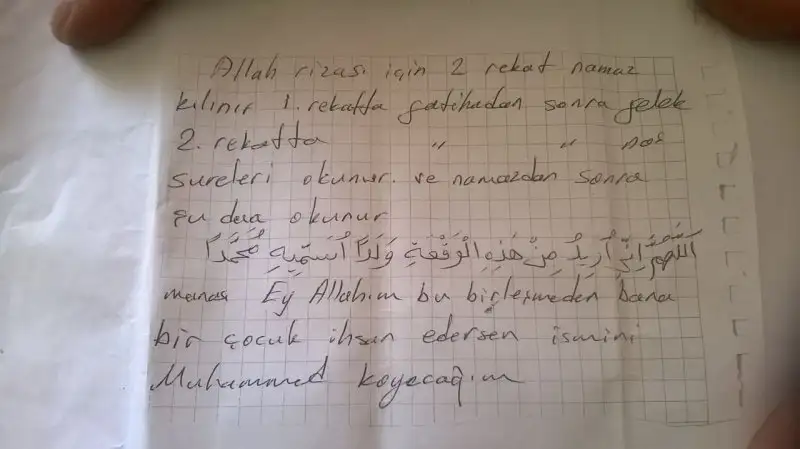 Allah rızası için 2 rekat namaz
kılınır 1. rekatta fatihadan sonra felek
2. rekatta " " nas
sureleri okunur. ve namazdan sonra
şu dua okunur
اَللَّهُمَّ اِنِّي اُرِيدُ مِنْ هَذِهِ الْوَقْعَةِ وَلَدًا اُسَمِّيهِ مُحَمَّدًا
manası Ey Allahım bu birleşmeden bana
bir çocuk ihsan edersen ismini
Muhammed koyacağım